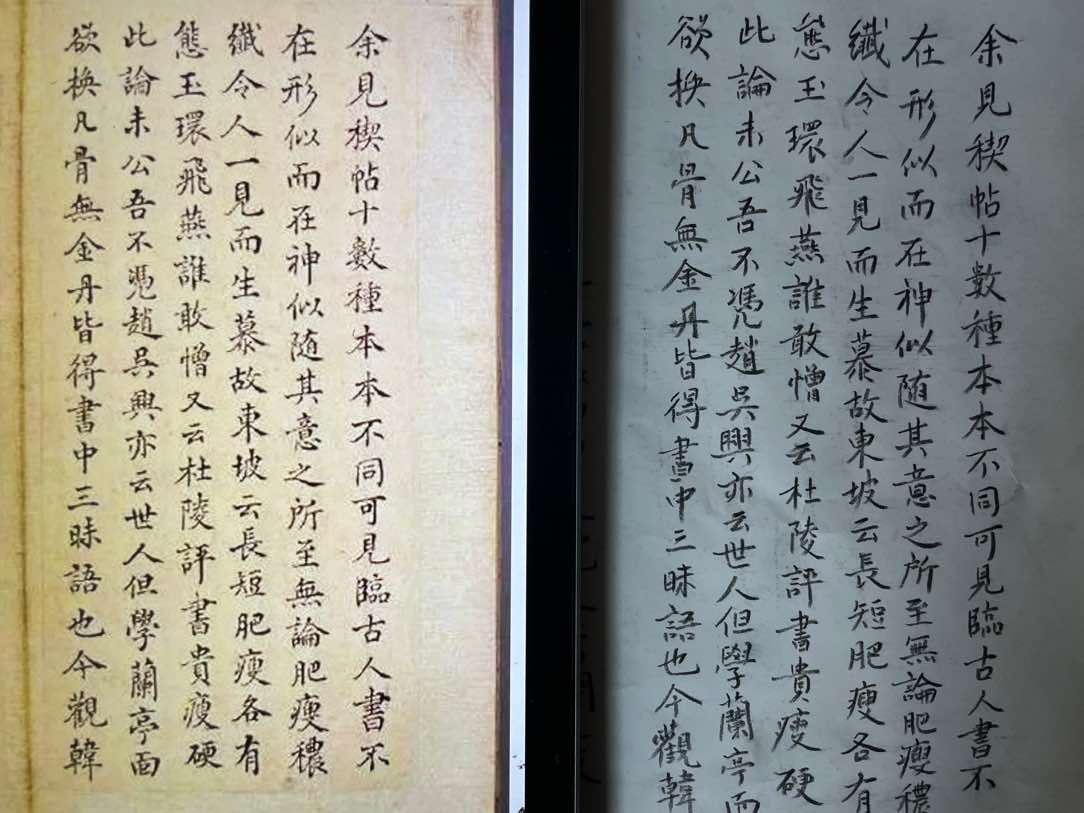 余見稧帖十數種本本不同可見臨古人書不
在形似而在神似随其意之所至無論肥瘦穠
纖令人一見而生慕故東坡云長短肥瘦各有
態玉環飛燕誰敢憎又云杜陵評書貴瘦硬
此論未公吾不凴趙吳興亦云世人但學蘭亭面
欲換凡骨無金丹皆得書中三昧語也今觀韓
余見稧帖十數種本本不同可見臨古人書不
在形似而在神似随其意之所至無論肥瘦穠
纖令人一見而生慕故東坡云長短肥瘦各有
態玉環飛燕誰敢憎又云杜陵評書貴瘦硬
此論未公吾不凴趙吳興亦云世人但學蘭亭而
欲換凡骨無金丹皆得書中三昧語也今觀韓